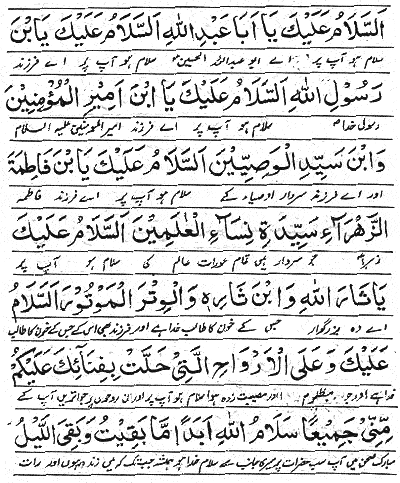 اَلسَّلَامُ عَلَيْكَ يَا اَبَا عَبْدِ اللهِ اَلسَّلَامُ عَلَيْكَ يَا بْنَ
سلام ہو آپ پر اے ابو عبداللہ الحسین سلام ہو آپ پر اے فرزند
رَسُوْلِ اللهِ اَلسَّلَامُ عَلَيْكَ يَا ابْنَ اَمِيْرِ الْمُؤْمِنِيْنَ
رسول خدا سلام ہو آپ پر اے فرزند امیر المومنین علیہ السلام
وَابْنَ سَيِّدِ الْوَصِيِّيْنَ اَلسَّلَامُ عَلَيْكَ يَا بْنَ فَاطِمَةَ
اور اے فرزند سردار اوصیاء کے سلام ہو آپ پر اے فرزند فاطمہ
الزَّهْرَآءِ سَيِّدَةِ نِسَآءِ الْعٰلَمِيْنَ اَلسَّلَامُ عَلَيْكَ
زہرا جو سردار ہیں تمام عورات عالم کی سلام ہو آپ پر
يَا ثَارَ اللهِ وَابْنَ ثَارِهٖ وَالْوِتْرَ الْمَوْتُوْرَ اَلسَّلَامُ
اے وہ بزرگوار جس کے خون کا طالب خدا ہے اور فرزند بھی اس کے جس کے خون کا طالب
عَلَيْكَ وَعَلَى الْاَرْوَاحِ الَّتِيْ حَلَّتْ بِفِنَآئِكَ عَلَيْكُمْ
خدا ہے اور مظلوم اور مصیبت زدہ ہوا سلام ہو آپ پر اور ان روحوں پر جو اتریں آپ کے
مِنِّيْ جَمِيْعًا سَلَامُ اللهِ اَبَدًا مَّا بَقِيْتُ وَبَقِيَ اللَّيْلُ
مبارک صحن میں آپ سب حضرات پر میری جانب سے سلام خدا ہو ہمیشہ جب تک کہ میں زندہ ہوں اور رات